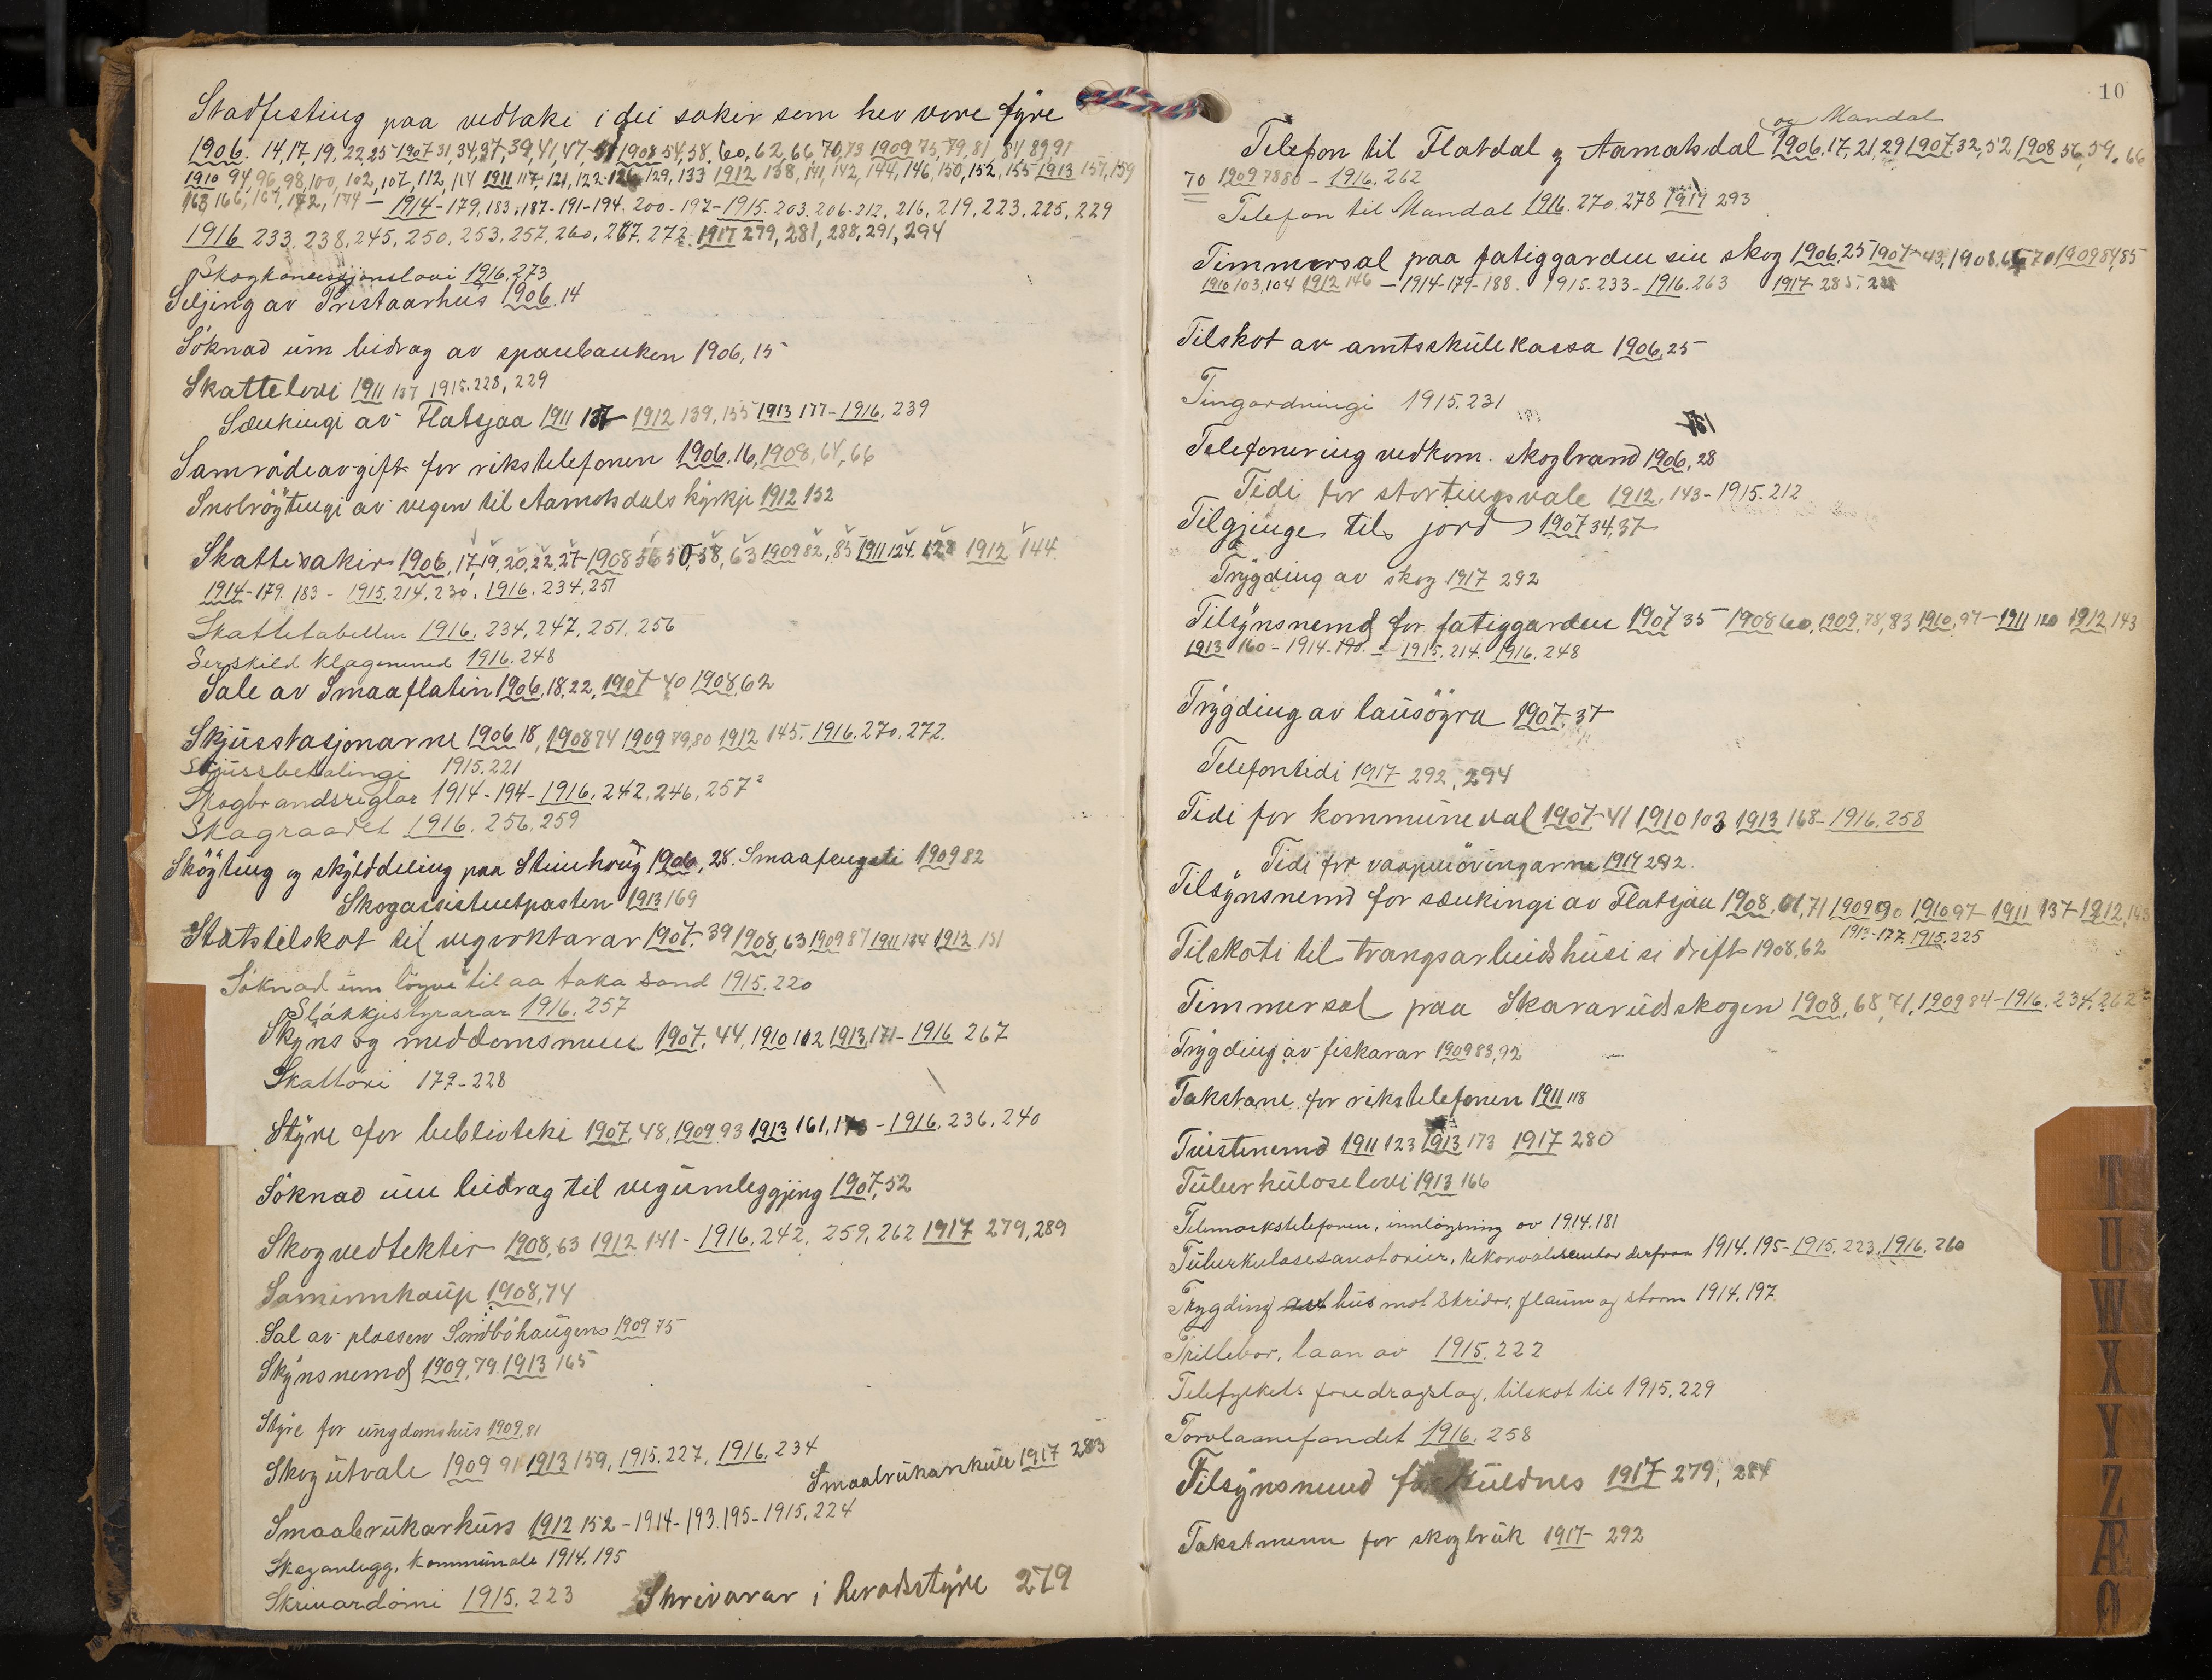 Stadfesting paa vedtaki i dei sakir som hev vore fyre
1906. 14, 17, 19, 22, 25 1907 31, 34, 37, 39, 41, 47, 51 1908 54, 58, 60, 62, 66, 70, 73 1909 75, 79, 81, 84, 89, 91
1910 94, 96, 98, 100, 102, 107, 112, 114 1911 117, 121, 122, 126, 129, 133 1912 138, 141, 142, 144, 146, 150, 152, 155 1913 157, 159
163, 166, 169, 172, 174 - 1914 - 179, 183, 187 - 191 - 194. 200 - 197 - 1915. 203. 206. 212. 216, 219. 223. 225. 229
1916 233, 238, 245, 250, 253, 257, 260, 267, 272. 1917 279, 281, 288, 291, 294
Skogkoncessjonslovi 1916. 273
Seljing av Prestaarhus 1906. 14
Söknad um bidrag av sparebanken 1906, 15
Skattelovi 1911 137 1915. 228, 229
Sænkingi av Flatsjaa 1911 137 - 1912 139, 155 1913 177 - 1916. 239
Samrödeavgift for rikstelefonen 1906. 16, 1908, 64, 66
Snolröytingi av vegen til Aamotsdals kyrkje 1912 152
Skattesakir 1906, 17, 19, 20, 22, 27 - 1908 56 50, 58, 63 1909 82, 85 1911 124. 128 1912 144.
1914 - 179. 183 - 1915. 214. 230. 1916. 234. 251
Skattetabellen 1916. 234, 247, 251. 256
Serskild klagenemnd 1916. 248
Sale av Smaaflatin 1906, 18, 22, 1907 40 1908, 62
Skjusstasjonarne 1906 18, 1908 74 1909 79, 80 1912 145. 1916. 270. 272.
Skjussbetalingi 1915. 221
Skogbrandsreglar 1914 - 194 - 1916. 242, 246, 257²
Skograadet 1916. 256, 259
Sköyting og skylddeling paa Steinhoug 1906, 28. Smaafengsli 1909 82
Skogassistentposten 1913 169
Statstilskot til vegvoktarar 1907. 39 1908, 63 1909 87 1911 134 1912 151
Söknad um löyve til aa taka sand 1915. 220
Slökkjestyrarar 1916. 257
Skyns og meddomsmenn 1907. 44, 1910 102 1913, 171 - 1916 267
Skattöri 179 - 228
Styre for biblioteki 1907, 48, 1909 93 1913 161, 173 - 1916. 236. 240
Söknad um bidrag til vegumleggjing 1907, 52
Skogvedtekter 1908, 63 1912 141 - 1916. 242. 259, 262 1917 279, 289
Saminnkaup 1908, 74
Sal av plassen Sundböhaugens 1909 75
Skynsnemd 1909, 79 1913 165
Styre for ungdomshus 1909, 81
Skogutvale 1909 91 1913 159, 1915. 227, 1916. 234
Smaabrukarskule 1917 283
Smaabrukarkurs 1912 152 - 1914 - 193. 195 - 1915. 224
Skoganlegg, kommunale 1914. 195
Skrivardömi 1915. 223 Skrivarar i heradsstyre 279
10
og Mandal
Telefon til Flatdal og Aamotsdal 1906, 17, 21, 29 1907, 32, 52 1908 56, 59, 66
70 1909 78 80 - 1916. 262
Telefon til Mandal 1916. 270. 278 1917 293
Timmersal paa fatiggarden sin skog 1906, 25 1907 43, 1908, 66 70 1909 84, 85
1910 103, 104 1912 146 - 1914 - 179 - 188. 1915. 233 - 1916. 263 1917 285.
Tilskot av amtsskulekassa 1906, 25
Tingordningi 1915. 231
Telefonering vedkom. skogbrand 1906, 28
Tidi for stortingsvale 1912, 143 - 1915. 212
Tilgjenge til jord 1907 34, 37
Trygding av skog 1917 292
Tilsynsnemd for fatiggarden 1907 35 - 1908 60, 1909, 78, 83 1910, 97 - 1911 120 1912, 143
1913 160 - 1914 - 190. - 1915. 214. 1916. 248
Trygding av lausöyra 1907. 37
Telefontidi 1917 292, 294
Tidi for kommuneval 1907 - 41 1910 103 1913 168 - 1916. 258
Tidi for vaapenövingarne 1917 292.
Tilsynsnemd for sænkingi av Flatsjaa 1908. 61, 71 1909 90 1910 97 - 1911 137 - 1912, 143
1913 - 177. 1915. 225
Tilskoti til tvangsarbeidshusi si drift 1908, 62
Timmersal paa Skararudskogen 1908, 68, 71, 1909 84 - 1916. 234, 262
Trygding av fiskarar 1909 83, 92
Takstane for rikstelefonen 1911 118
Tuistenemd 1911 123 1913 173 1917 280
Tuberkuloselovi 1913 166
Telemarkstelefonen, innlöysning av 1914. 181
Tuberkulosesanatorier, rekonvalescentar derfraa 1914. 195 - 1915. 223. 1916. 260
Trygding hus mot skridor, flaum og storm 1914. 197.
Trillebor, laan av 1915. 222
Telefylkets foredragslag, tilskot til 1915. 229
Torvlaanefondet 1916. 258
Tilsynsmend for Kuldnes 1917 279, 284
Takstmenn for skogbruk 1917 292
T
U
W
X
Y
Z
Æ
Ø